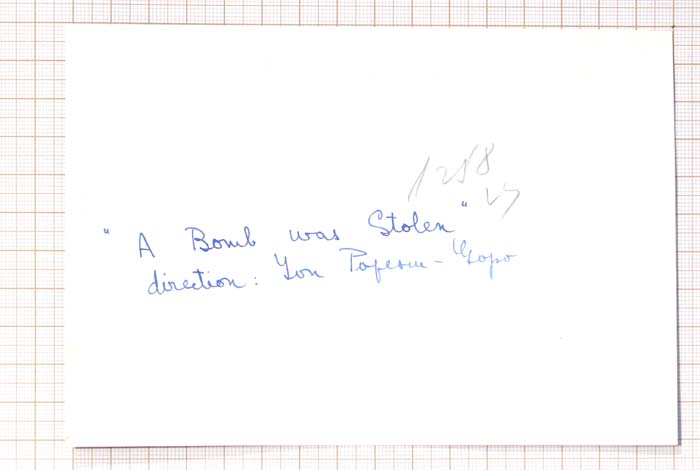 1258
"A Bomb was Stolen"
direction: Yon Popescu-Gopo